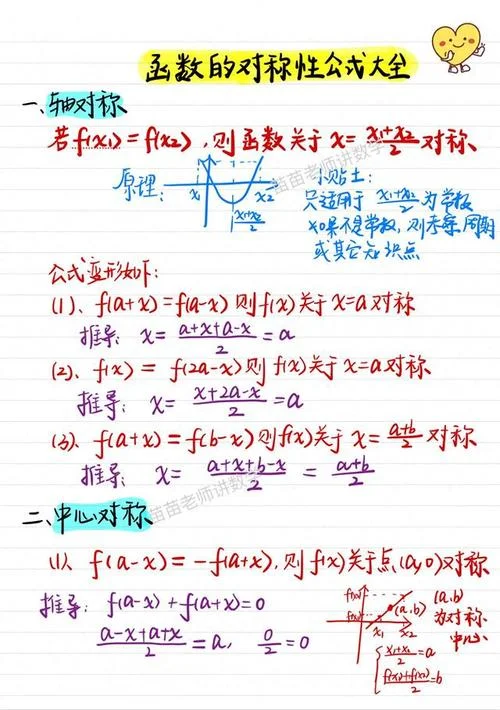 函数的对称性公式大全
一、轴对称
若f(x₁)=f(x₂),则函数关于x=\frac{x₁+x₂}{2}对称、
原理:
x₁ x₂
\frac{x₁+x₂}{2}
小贴士:
只适用于\frac{x₁+x₂}{2}为常数
如果不是常数,则考虑周期
或其它知识点
苗苗老师讲数学
公式变形如下:
(1)、f(a+x)=f(a-x)则f(x)关于x=a对称
推导:x=\frac{a+x+a-x}{2}=a
(2)、f(x)=f(2a-x)则f(x)关于x=a对称
推导:x=\frac{x+2a-x}{2}=a
(3)、f(a+x)=f(b-x)则f(x)关于x=\frac{a+b}{2}对称
推导:x=\frac{a+x+b-x}{2}=\frac{a+b}{2}
苗苗老师讲数学
二、中心对称
(1)、f(a-x)=-f(a+x),则f(x)关于点(a,0)对称
推导:f(a-x)+f(a+x)=0
\frac{a-x+a+x}{2}=a,\frac{0}{2}=0
f(x₂)
f(x₁)
(a,b)
x₁ x₂
(a,b)
为对称
中心
\frac{x₁+x₂}{2}=a
\frac{f(x₁)+f(x₂)}{2}=b